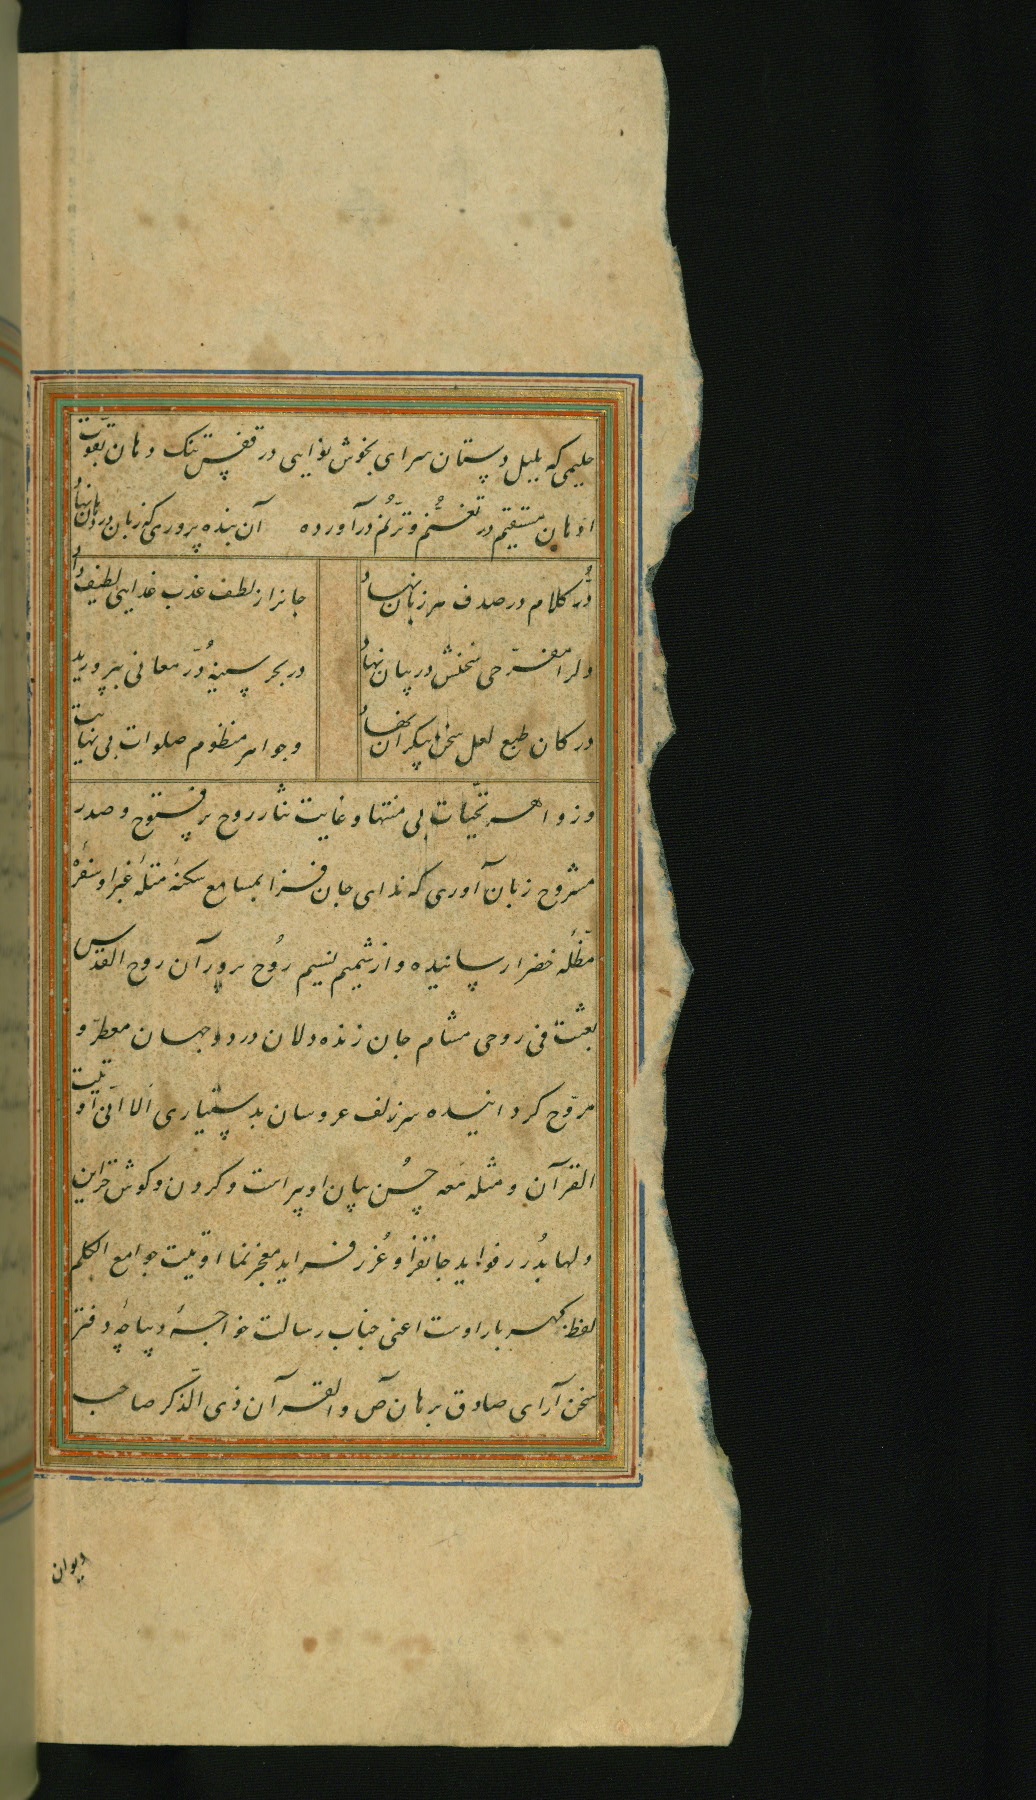 حلیمی که بلبل دستان سرای بخوش نوایی در قفس تنک دهان بقوت
اذهان مستقیم در تغنّم و ترنم درآورده آن بنده پروری که زبان در دهان نهاد
دُر کلام در صدف هر زبان نهاد جانرا ز لطف عذب غذایی لطیف داد
دلرا مفرّحی سخنش در بیان نهاد در بحر سینه دُرّ معانی بپرورید
در کان طبع لعل سخن بیکران نهاد وجواهر منظوم صلوات بی نهایت
وزواهر تحیّات بی منتها و غایت نثار روح پر فتوح و صدر
مشروح زبان آوری که ندای جان فزا بمسامع سکنهٔ مقلهٔ غبرا و سفرهٔ
مظلّه خضرا رسانیده و از شمیم نسیم رُوح پرور آن روح القدس
نفث فی روعی مشام جان زنده دلان در دو جهان معطّر و
مروّح کردانیده سر زلف عروسان بدستیاری الا انّی اوتیت
القرآن و مثله معه حُسن بیان او پیراست و کردن و کوش قراین
دلها بدُرر فواید جانفزا و غُرر فراید معجز نما اوتیت جوامع الکلم
لفظ کهربار اوست اعنی جناب رسالت خواجهٔ دیباچهٔ دفتر
سخن آرای صادق برهان صٓ والقرآن ذی الذّکر صاحب
دیوان